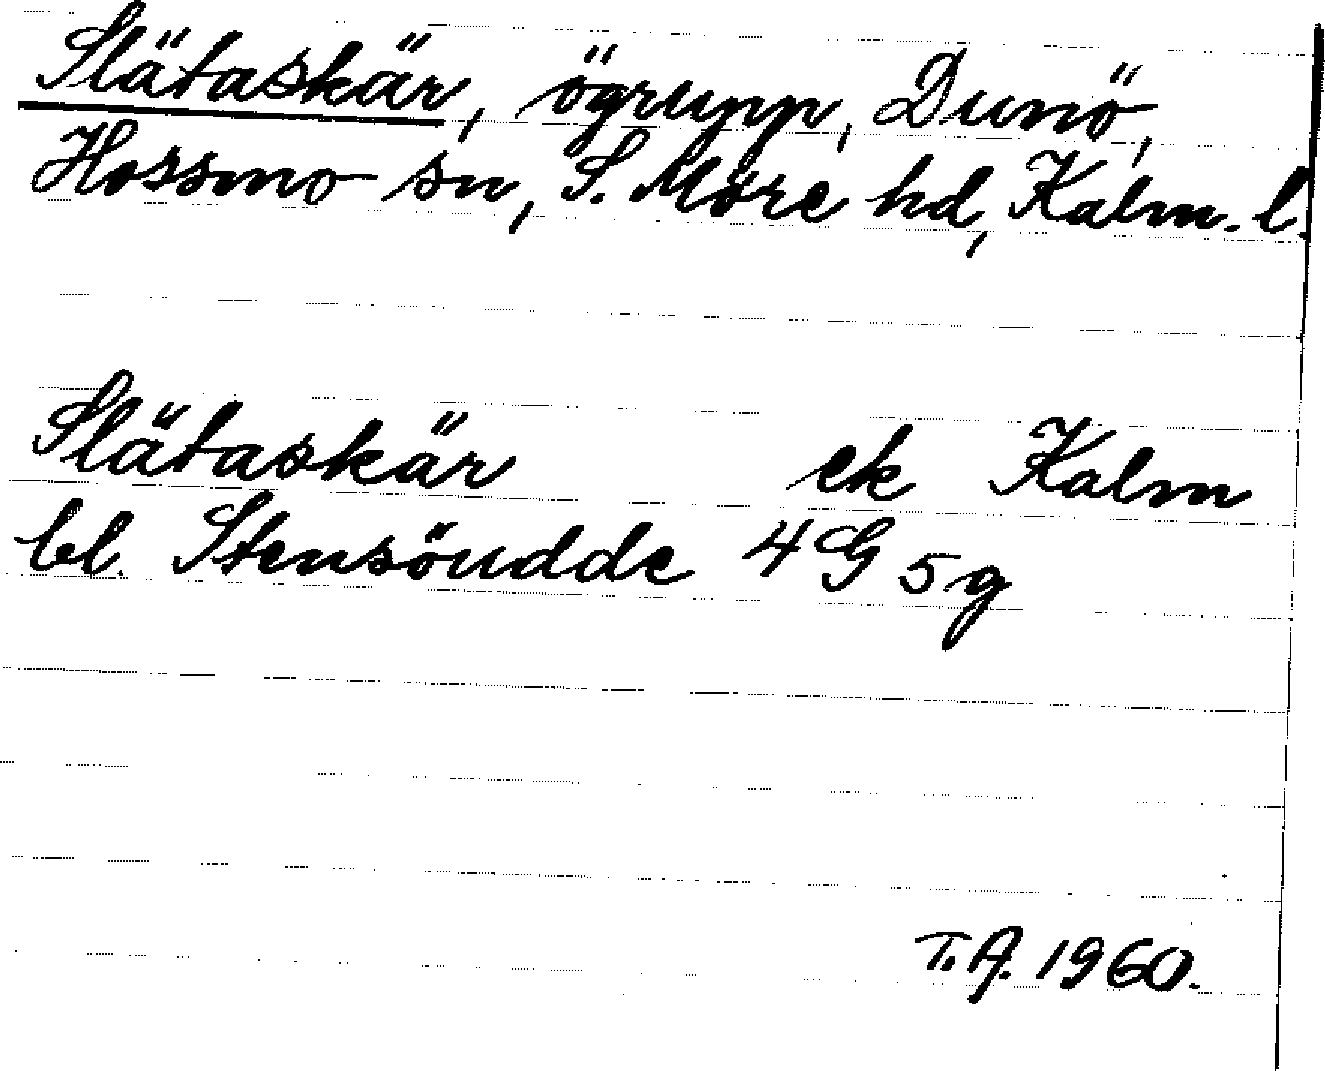 Slätaskär, ögrupp, Dunö,
Hossmo sn, S. Möre hd, Kalm. l.
Slätaskär ek Kalm
bl. Stensöudde 4G5g
T.A. 1960.